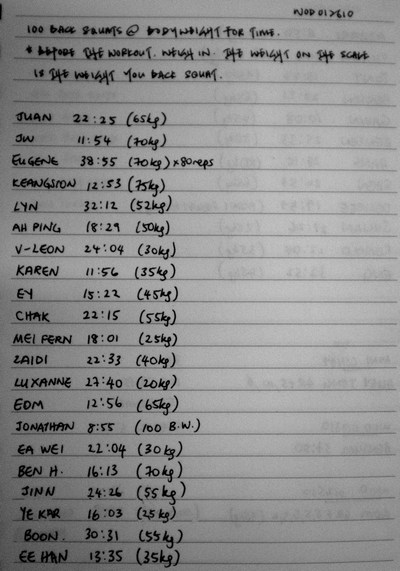 WOD 012610
100 BACK SQUATS @ BODYWEIGHT FOR TIME.
* BEFORE THE WORKOUT. WEIGH IN. THE WEIGHT ON THE SCALE
IS THE WEIGHT YOU BACK SQUAT.
JUAN 22:25 (65kg)
JW 11:54 (70kg)
EUGENE 38:55 (70kg) x 80reps
KEANGSIONN 12:53 (75kg)
LYN 32:12 (52kg)
AH PING 18:29 (50kg)
V-LEON 24:04 (30kg)
KAREN 11:56 (35kg)
EY 15:22 (45kg)
CHAK 22:15 (55kg)
MEI FERN 18:01 (25kg)
ZAIDI 22:33 (40kg)
LUXANNE 27:40 (20kg)
EDM 12:56 (65kg)
JONATHAN 8:55 (100 B.W.)
EA WEI 22:04 (30kg)
BEN H. 16:13 (70kg)
JINN 24:26 (55kg)
YE KAR 16:03 (25kg)
BOON. 30:31 (55kg)
EE HAN 13:35 (35kg)